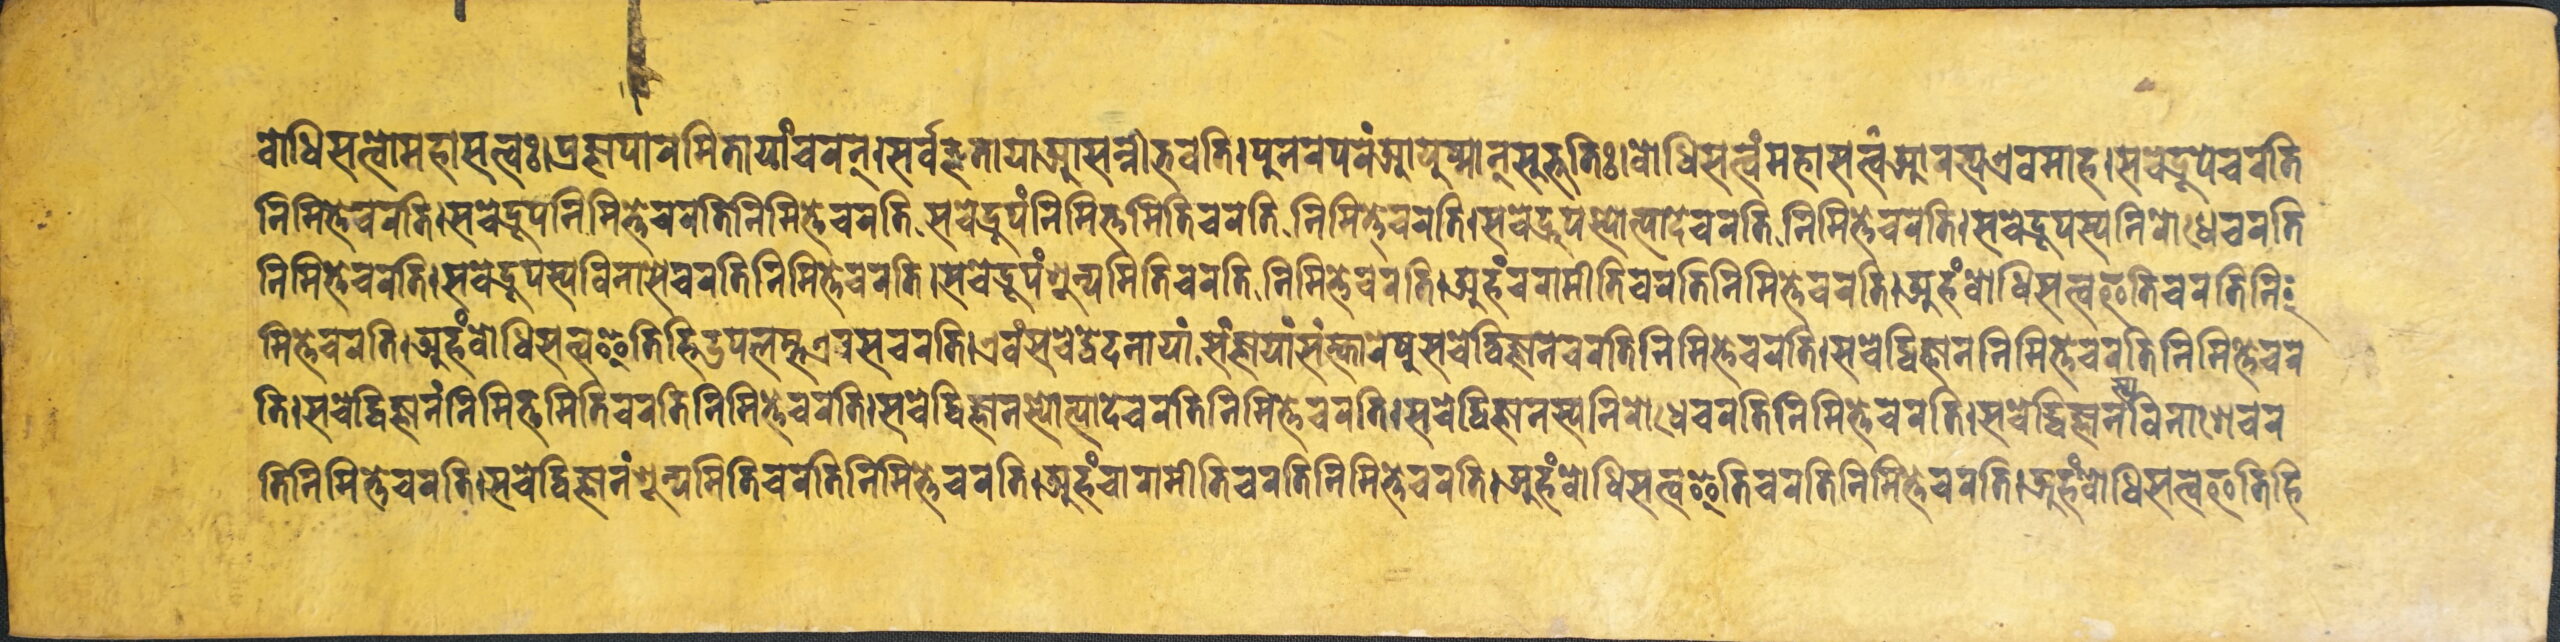 बोधिसत्वोमहासत्वः।प्रज्ञापारमितायांचरन्।सर्वज्ञतायाआसन्नीभवति।पुनरपरंआयुष्मान्सुभुतिः।बोधिसत्वंमहासत्वंआरभ्यएवमाह।सचेद्रूपेचरति
निमित्तेचरति।सचेद्रूपनिमित्तेचरतिनिमित्तेचरति,सचेद्रूपंनिमित्तमितिचरति,निमित्तेचरति।सचेद्रूपस्योत्पादेचरति,निमित्तेचरति।सचेद्रूपस्यनिरोधेचरति
निमित्तेचरति।सचेद्रूपस्यविनासेचरतिनिमित्तेचरति।सचेद्रूपंशून्यमितिचरति,निमित्तेचरति।अहंचरामीतिचरतिनिमित्तेचरति।अहंबोधिसत्वइतिचरतिनि
मित्तेचरति।अहंबोधिसत्वइतिह्युपलम्भएवसचरति।एवंसचेद्वेदनायां,संज्ञायांसंस्कारेषुसचेद्विज्ञानेचरतिनिमित्तेचरति।सचेद्विज्ञाननिमित्तेचरतिनिमित्तेचर
ति।सचेद्विज्ञानंनिमित्तमितिचरतिनिमित्तेचरति।सचेद्विज्ञानस्योत्पादेचरतिनिमित्तेचरति।सचेद्विज्ञानस्यनिरोधेचरतिनिमित्तेचरति।सचेद्विज्ञानस्यविनाशेचर
तिनिमित्तेचरति।सचेद्विज्ञानंशून्यमितिचरतिनिमित्तेचरति।अहंचारामीतिचरतिनिमित्तेचरति।अहंबोधिसत्वइतिचरतिनिमित्तेचरति।अहंबोधिसत्वइतिहि